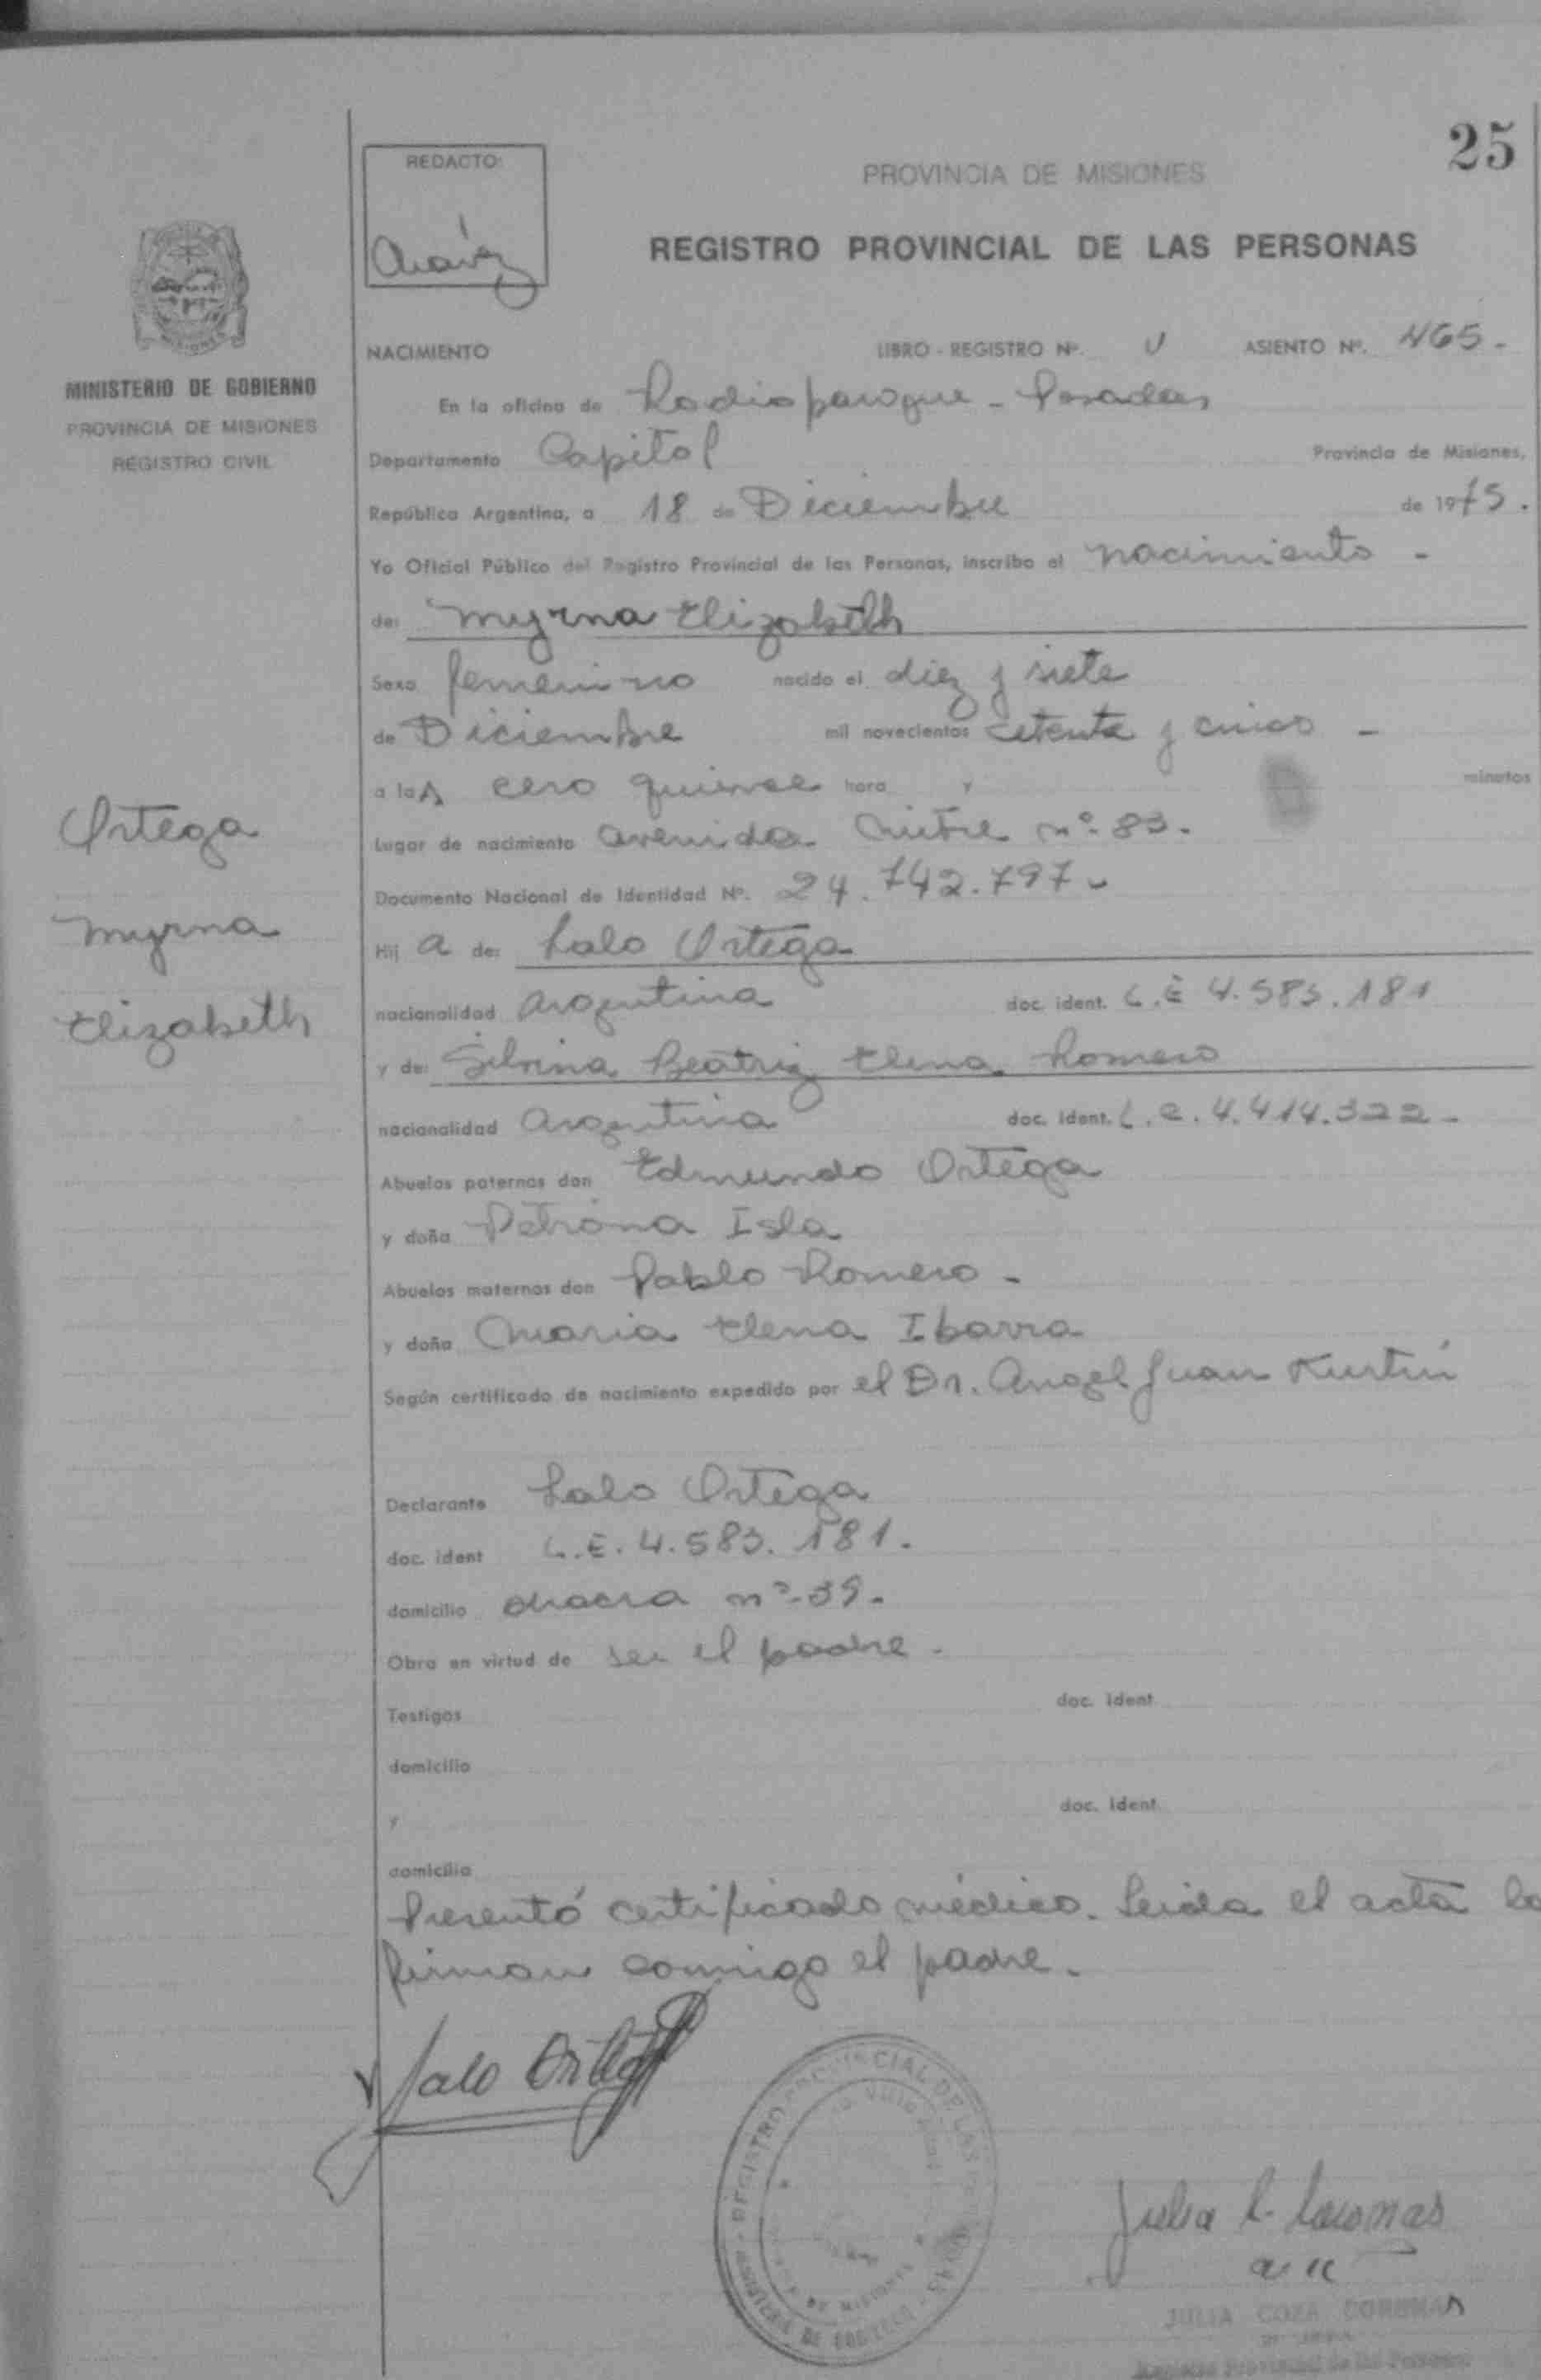 25
REDACTO:
Chávez
PROVINCIA DE MISIONES
REGISTRO PROVINCIAL DE LAS PERSONAS
MINISTERIO DE GOBIERNO
PROVINCIA DE MISIONES
REGISTRO CIVIL
NACIMIENTO LIBRO - REGISTRO Nº. V ASIENTO Nº. 465.-
En la oficina de Radioparque - Posadas
Departamento Capital Provincia de Misiones,
República Argentina, a 18 de Diciembre de 1975.
Yo Oficial Público del Registro Provincial de las Personas, inscribo el nacimiento -
de: Myrna Elizabeth
Sexo femenino nacido el diez y siete
de Diciembre mil novecientos setenta y cinco -
a las cero quince hora y minutos
Lugar de nacimiento avenida Mitre nº 83.
Documento Nacional de Identidad Nº. 24.742.797-
Hij a de: Lalo Ortega
nacionalidad argentina doc. ident. L.E 4.583.181
y de: Silvina Beatriz Elena Romero
nacionalidad argentina doc. ident. L.C. 4.414.322-
Abuelos paternos don Edmundo Ortega
y doña Petrona Isla
Abuelos maternos don Pablo Romero -
y doña Maria Elena Ibarra
Según certificado de nacimiento expedido por el Dr. Angel Juan
Declarante Lalo Ortega
doc. ident L.E. 4.583.181.
domicilio chacra nº 39.
Obra en virtud de ser el padre.
Testigos doc. ident
domicilio
y doc. ident
domicilio
Presentó certificado médico. Leida el acta la
firman conmigo el padre.
Ortega
Myrna
Elizabeth
Lalo Ortega
REGISTRO PROVINCIAL DE LAS
DE MISIONES
Julia
JULIA
Registro Provincial de las Personas